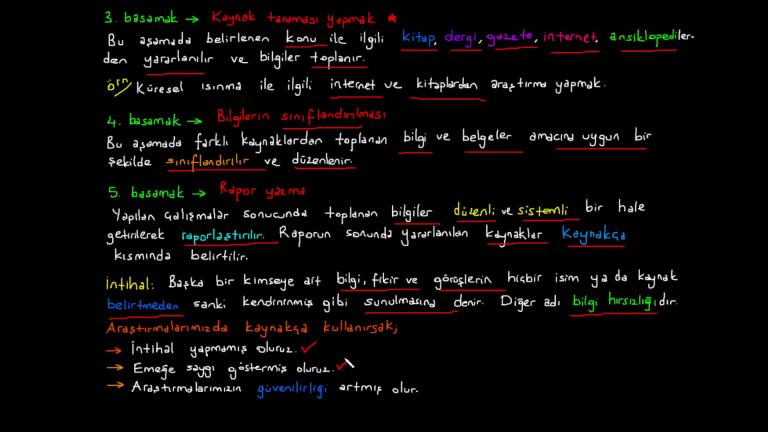 3. basamak → Kaynak taraması yapmak ★
Bu aşamada belirlenen konu ile ilgili kitap, dergi, gazete, internet, ansiklopediler-
den yararlanılır ve bilgiler toplanır.
örn/ Küresel ısınma ile ilgili internet ve kitaplardan araştırma yapmak.
4. basamak → Bilgilerin sınıflandırılması
Bu aşamada farklı kaynaklardan toplanan bilgi ve belgeler amacına uygun bir
şekilde sınıflandırılır ve düzenlenir.
5. basamak → Rapor yazma
Yapılan çalışmalar sonucunda toplanan bilgiler düzenli ve sistemli bir hale
getirilerek raporlaştırılır. Raporun sonunda yararlanılan kaynaklar Kaynakça
kısmında belirtilir.
İntihal: Başka bir kimseye ait bilgi, fikir ve görüşlerin hiçbir isim ya da kaynak
belirtmeden sanki kendininmiş gibi sunulmasına denir. Diğer adı bilgi hırsızlığıdır.
Araştırmalarımızda kaynakça kullanırsak;
→ İntihal yapmamış oluruz. ✓
→ Emeğe saygı göstermiş oluruz. ✓
→ Araştırmalarımızın güvenilirliği artmış olur.